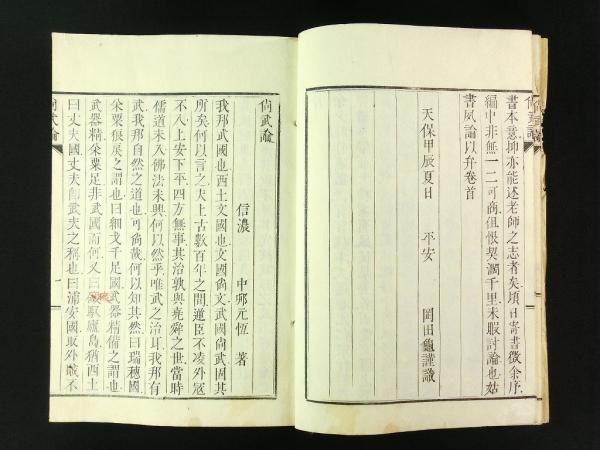 書本意抑亦能述老師之志者矣頃日寄書徵余序
編中非無一二可商但恨契濶千里未暇討論也姑
書夙論以弁卷首
天保甲辰夏日　平安　岡田龜謹識
尚武論
信濃　中邨元恆　著
我邦武國也西土文國也文國尚文武國尚武固其
所矣何以言之夫上古數百年之間逆臣不凌外冦
不入上安下平四方無事其治孰與堯舜之世當時
儒道未入佛法未興何以然乎唯武之治耳我邦有
武我邦自然之道也可尚哉何以知其然曰瑞穗國
籴粟狼戾之謂也曰細戈千足國武器精備之謂也
武器精籴粟足非武國而何又曰馭盧島猶西土
曰丈夫國丈夫卽武夫之稱也曰浦安國取外敵不
尚武論